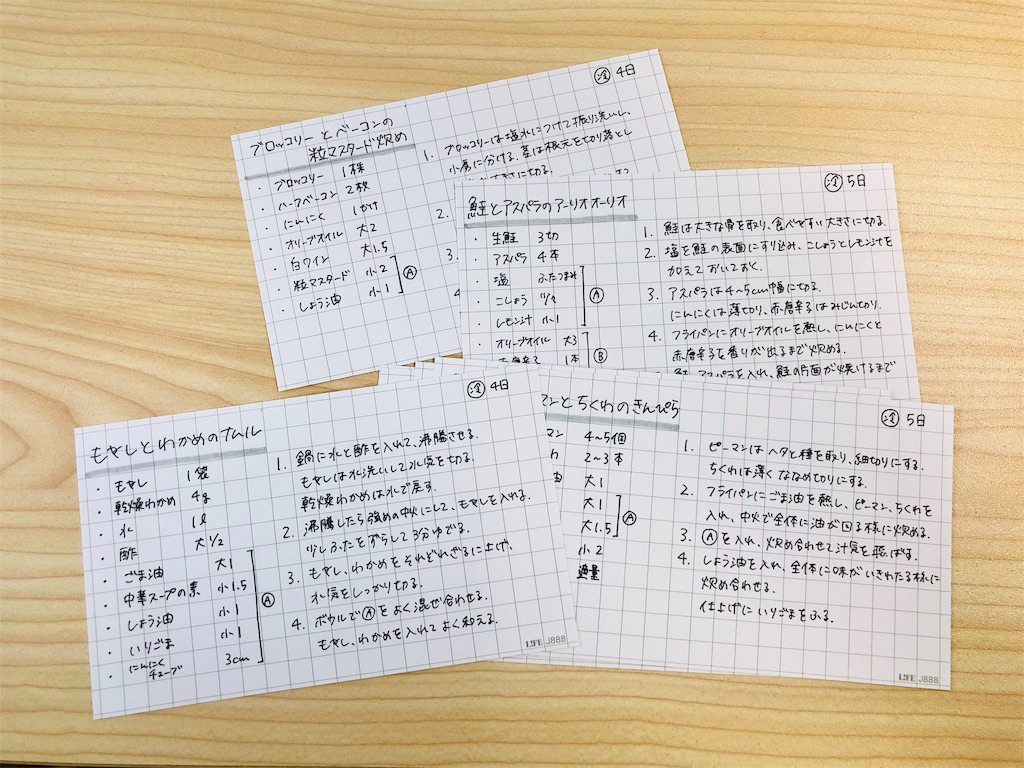 冷 4日
ブロッコリーとベーコンの
粒マスタード炒め
・ブロッコリー 1株
・ハーフベーコン 2枚
・にんにく 1かけ
・オリーブオイル 大2
・白ワイン 大1.5
・粒マスタード 小2
・しょう油 小1
A
1. ブロッコリーは塩水につけて振り洗いし、
小房に分ける。茎は根元を切り落とし
大きさに切る。
2.
3.
4
冷 5日
鮭とアスパラのアーリオオーリオ
・生鮭 3切
・アスパラ 4本
・塩 ふたつまみ
・こしょう 少々
・レモン汁 小1
A
・オリーブオイル 大3
赤唐辛子 1本
B
1. 鮭は大きな骨を取り、食べやすい大きさに切る。
2. 塩を鮭の表面にすり込み、こしょうとレモン汁を
加えておいておく。
3. アスパラは4~5cm幅に切る。
にんにくは薄切り、赤唐辛子はみじん切り。
4. フライパンにオリーブオイルを熱し、にんにくと
赤唐辛子を香りが出るまで炒める。
鮭、アスパラを入れ、鮭の片面が焼けるまで
冷 4日
もやしとわかめのナムル
・もやし 1袋
・乾燥わかめ 4g
・水 1ℓ
・酢 大1/2
・ごま油 大1
・中華スープの素 小1.5
・しょう油 小1
・いりごま 小1
・にんにくチューブ 3cm
A
1. 鍋に水と酢を入れて、沸騰させる。
もやしは水洗いして水気を切る。
乾燥わかめは水で戻す。
2. 沸騰したら強めの中火にして、もやしを入れる。
少しふたをずらして3分ゆでる。
3. もやし、わかめをそれぞれざるに上げ、
水気をしっかり切る。
4. ボウルでAをよく混ぜ合わせる。
もやし、わかめを入れてよく和える。
LIFE J888
冷 5日
マンとちくわのきんぴら
マン 4~5個
2~3本
大1
大1
大1.5
A
小2
適量
1. ピーマンはヘタと種を取り、細切りにする。
ちくわは薄くななめ切りにする。
2. フライパンにごま油を熱し、ピーマン、ちくわを
入れ、中火で全体に油が回る様に炒める。
3. Aを入れ、炒め合わせて汁気を飛ばる。
4. しょう油を入れ、全体に味がいきわたる様に
炒め合わせる。
仕上げにいりごまをふる。
LIFE J888